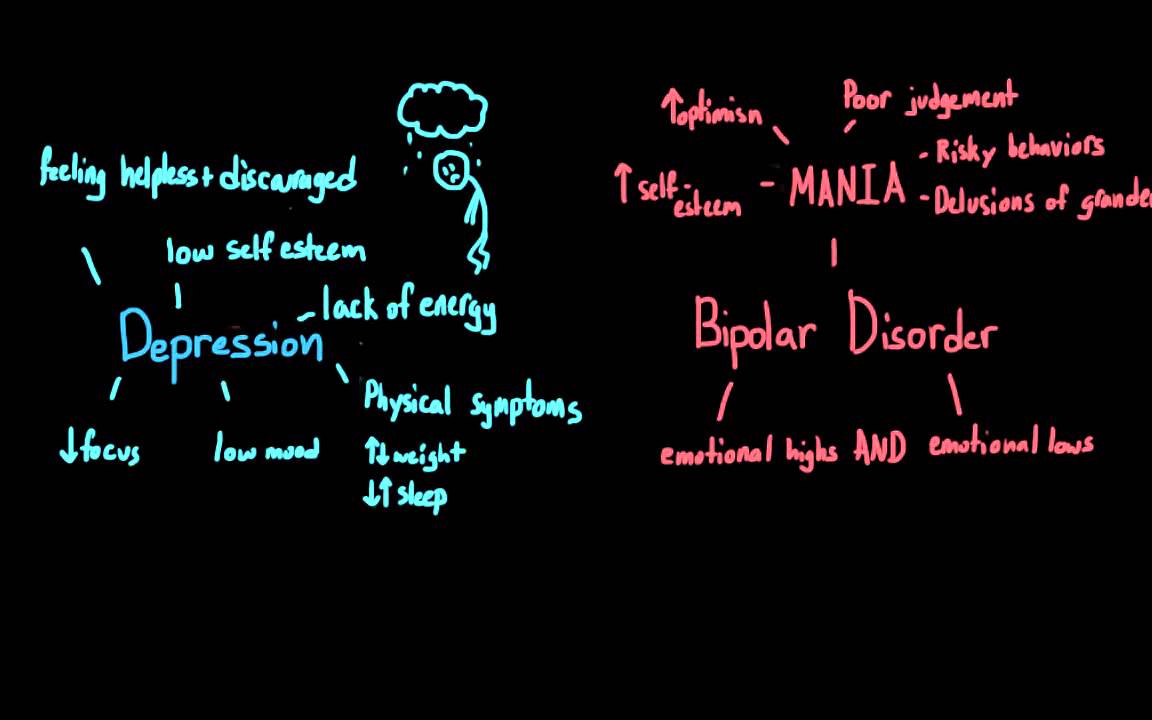 feeling helpless + discouraged
low self esteem
lack of energy
Depression
Physical symptoms
↓focus
low mood
↑↓weight
↓↑sleep
↑optimisn
Poor judgement
↑self-esteem
- MANIA
- Risky behaviors
- Delusions of grande
Bipolar Disorder
emotional highs AND emotional lows